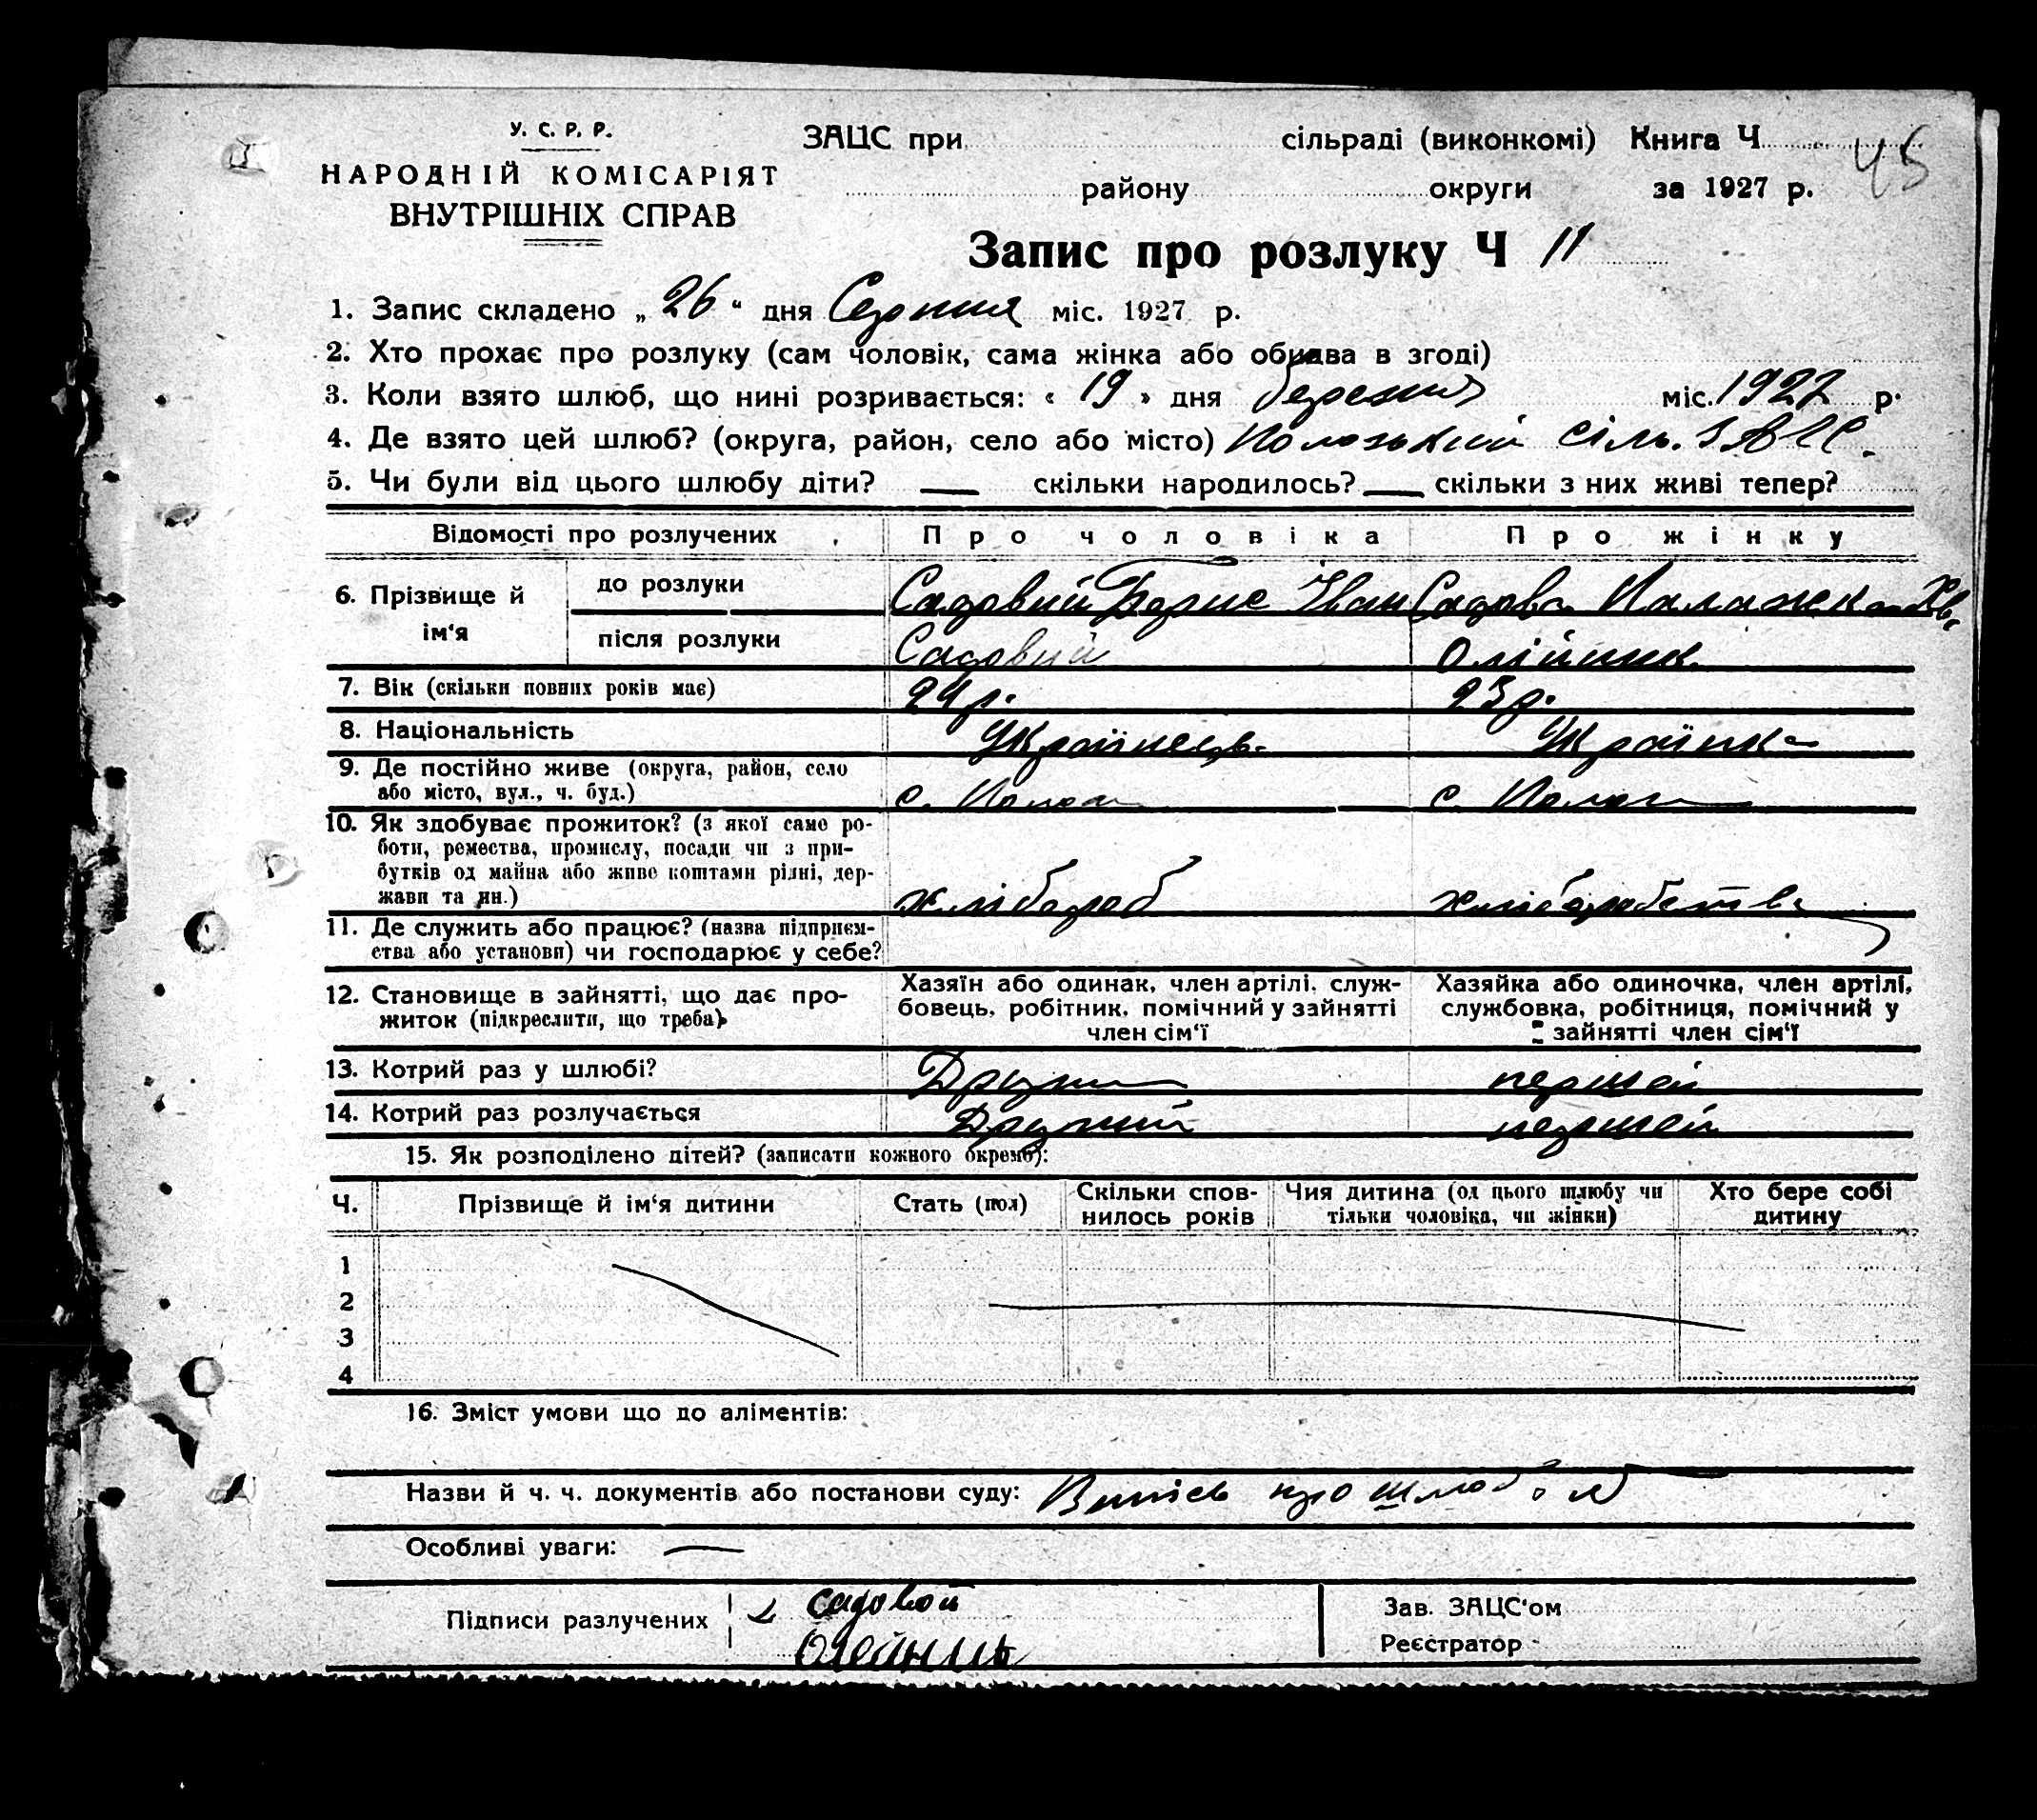 У. С. Р. Р.
НАРОДНІЙ КОМІСАРІЯТ
ВНУТРІШНІХ СПРАВ
ЗАЦС при сільраді (виконкомі) Книга Ч 45
району округи за 1927 р.
Запис про розлуку Ч 11
1. Запис складено „ 26 “ дня Серпня міс. 1927 р.
2. Хто прохає про розлуку (сам чоловік, сама жінка або обидва в згоді)
3. Коли взято шлюб, що нині розривається: « 19 » дня березня міс. 1927 р.
4. Де взято цей шлюб? (округа, район, село або місто) сіль. ЗАГС.
5. Чи були від цього шлюбу діти? — скільки народилось? — скільки з них живі тепер?
Відомості про розлучених Про чоловіка Про жінку
6. Прізвище й ім‘я
до розлуки Садовий Борис Іван Садова Палажка Хв.
після розлуки Садовий Олійник
7. Вік (скільки повних років має) 24 р. 23 р.
8. Національність Українець Українка
9. Де постійно живе (округа, район, село
або місто, вул., ч. буд.) с. с.
10. Як здобуває прожиток? (з якої саме ро-
боти, ремества, промислу, посади чи з при-
бутків од майна або живе коштами рідні, дер-
жави та ин.) хлібороб хліборобство
11. Де служить або працює? (назва підприєм-
ства або установи) чи господарює у себе?
12. Становище в зайнятті, що дає про-
житок (підкреслити, що треба)
Хазяїн або одинак, член артілі, служ-
бовець, робітник, помічний у зайнятті
член сім‘ї
Хазяйка або одиночка, член артілі,
службовка, робітниця, помічний у
зайнятті член сім‘ї
13. Котрий раз у шлюбі? першей
14. Котрий раз розлучається Другий першей
15. Як розподілено дітей? (записати кожного окремо):
Ч. Прізвище й ім‘я дитини Стать (пол) Скільки спов-
нилось років Чия дитина (од цього шлюбу чи
тільки чоловіка, чи жінки) Хто бере собі
дитину
1
2
3
4
16. Зміст умови що до аліментів:
Назви й ч. ч. документів або постанови суду: Витіс про шлюб
Особливі уваги: —
Підписи разлучених садовой
Олейникъ
Зав. ЗАЦС‘ом
Реєстратор